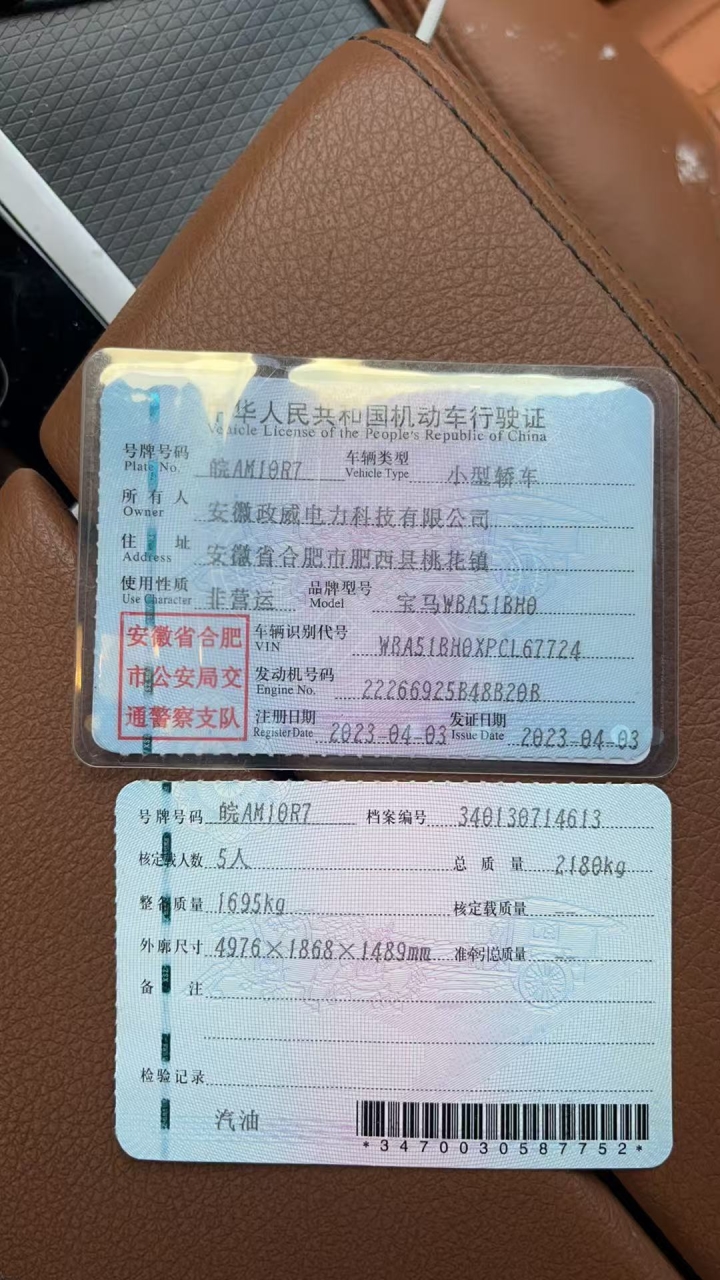 中华人民共和国机动车行驶证
Vehicle License of the People's Republic of China
号牌号码 皖AM10R7 车辆类型 小型轿车
Plate No. Vehicle Type
所有人 安徽政威电力科技有限公司
Owner
住址 安徽省合肥市肥西县桃花镇
Address
使用性质 非营运 品牌型号 宝马WBA51BH0
Use Character Model
安徽省合肥
市公安局交
通警察支队
车辆识别代号 WBA51BH0XPCL67724
VIN
发动机号码 22266925B48B20B
Engine No.
注册日期 2023-04-03 发证日期 2023-04-03
Register Date Issue Date
号牌号码 皖AM10R7 档案编号 340130714613
核定载人数 5人 总质量 2180kg
整备质量 1695kg 核定载质量 --
外廓尺寸 4976×1868×1489mm 准牵引总质量 --
备注
检验记录
汽油
*3470030587752*